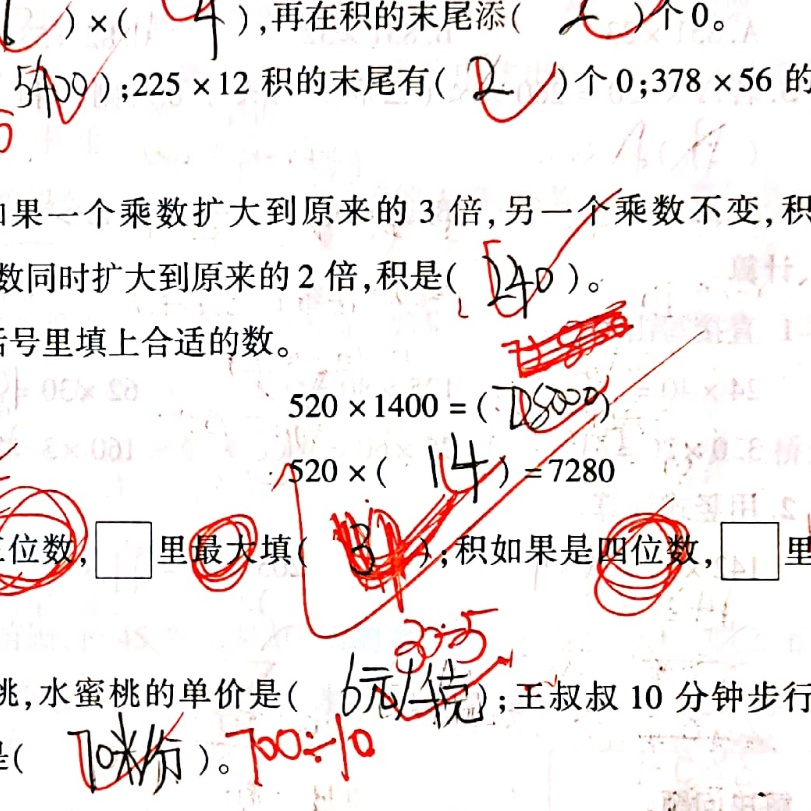 )×( 4 ),再在积的末尾添( 2 )个0。
5400 );225×12积的末尾有( 2 )个0;378×56的
如果一个乘数扩大到原来的3倍,另一个乘数不变,积
数同时扩大到原来的2倍,积是( 240 )。
括号里填上合适的数。
520×1400=( 728000 )
520×( 14 )=7280
三位数,□里最大填( 3 );积如果是四位数,□里
30÷5
桃,水蜜桃的单价是( 6元/千克 );王叔叔10分钟步行
是( 70米/分 )。700÷10